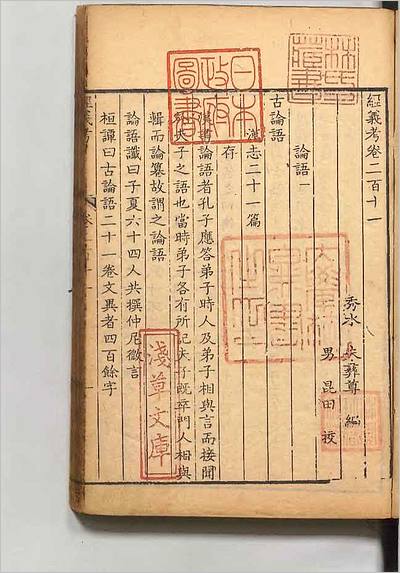 經義考卷二百十一
秀水 朱彝尊 編
男 昆田 校
論語一
古論語
漢志二十一篇
存
漢書論語者孔子應答弟子時人及弟子相與言而接聞
於夫子之語也當時弟子各有所記夫子既卒門人相與
輯而論纂故謂之論語
論語讖曰子夏六十四人共撰仲尼微言
桓譚曰古論語二十一卷文異者四百餘字
日本
政府
圖書
淺草文庫
林氏
藏書
經義考